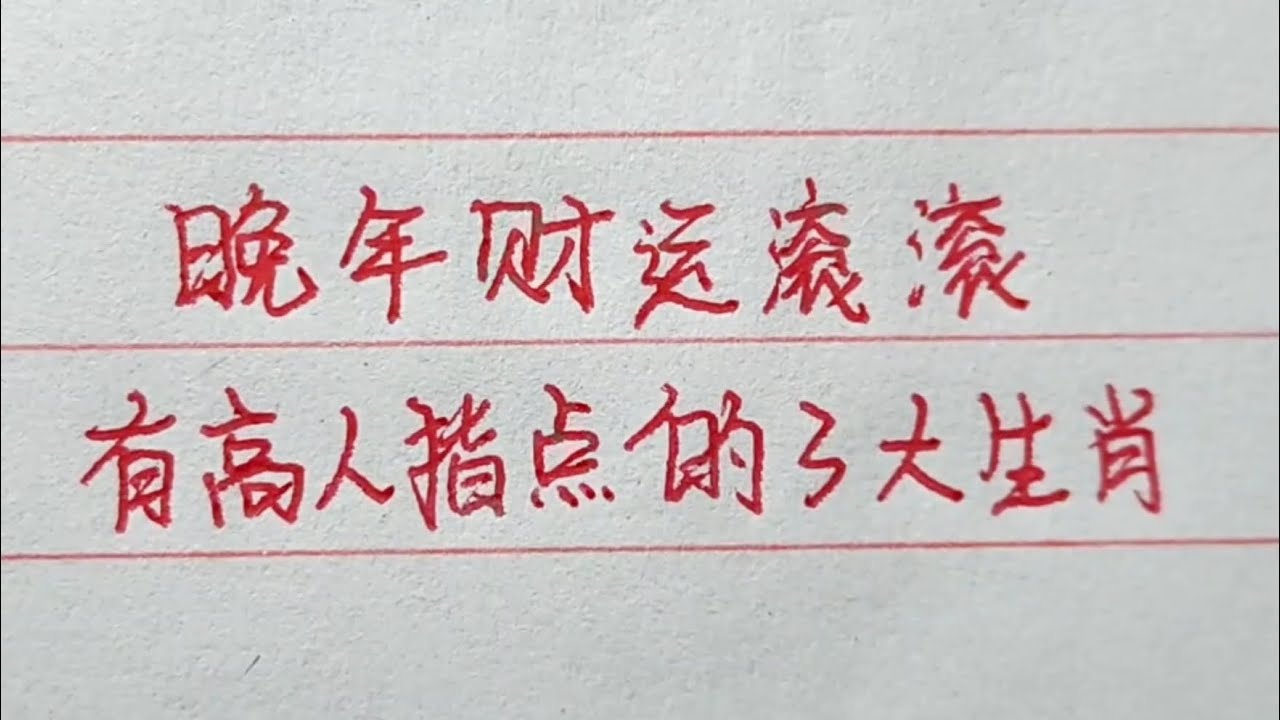 晚年财运滚滚
有高人指点的3大生肖